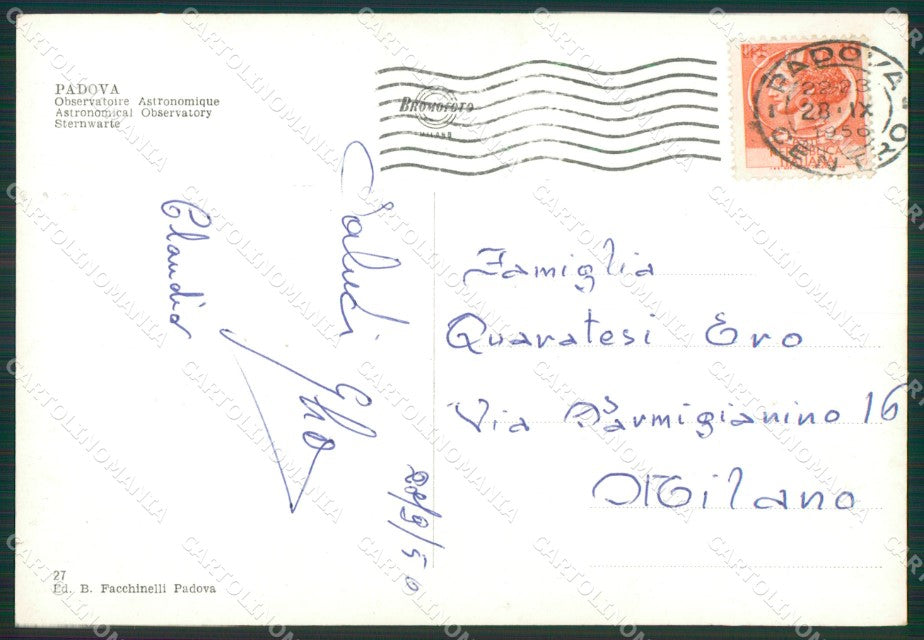 PADOVA
Observatoire Astronomique
Astronomical Observatory
Sternwarte
BROMOFOTO
MILANO
LIRE
PADOVA
CENTRO
28·IX
1956
Saluti
Claudio
Famiglia
Quaratesi Ero
Via Parmigianino 16
Milano
27
Ed. B. Facchinelli Padova
CARTOLINOMANIA